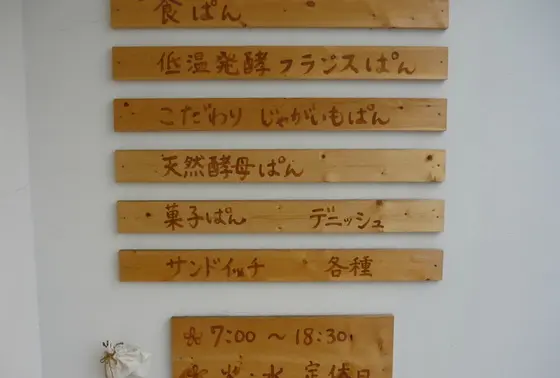 食ぱん
低温発酵フランスぱん
こだわり じゃがいもぱん
天然酵母ぱん
菓子ぱん デニッシュ
サンドイッチ 各種
7:00 ～ 18:30
火・水 定休日